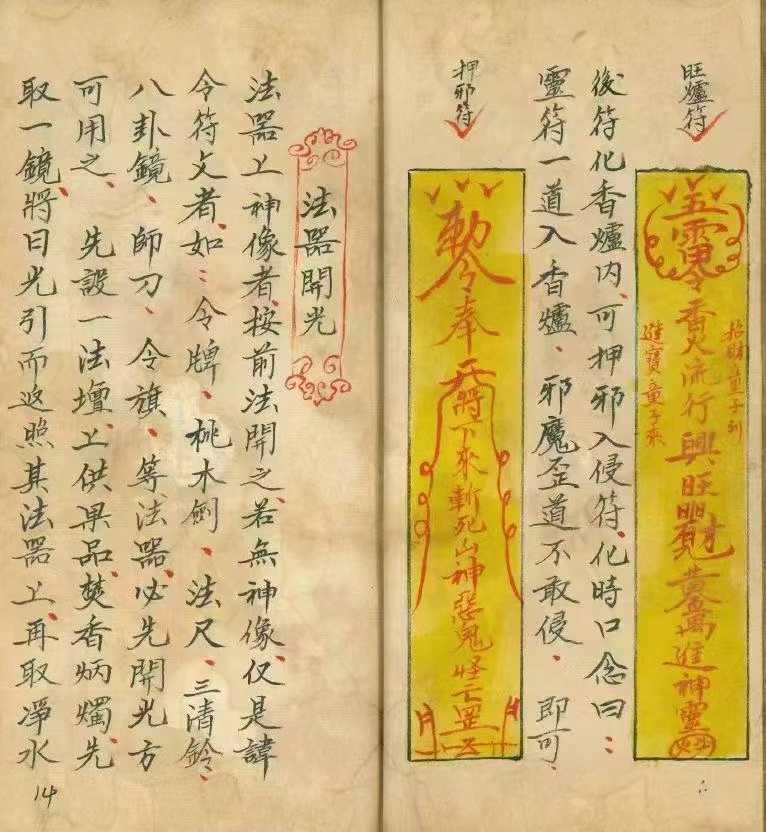 旺爐符
五雷令香火流行興旺
招財童子到
進寶童子來
後符化香爐內、可押邪入侵符、化時口念曰：
靈符一道入香爐、邪魔歪道不敢侵、即可、
押邪符
勅令奉天將下來斬死山神惡鬼怪亡罡
法器開光
法器上神像者、按前法開之、若無神像、仅是諱
令符文者、如：令牌、桃木劍、法尺、三清鈴、
八卦鏡、師刀、令旗、等法器、必先開光方
可用之、先設一法壇、上供果品、焚香炳燭、先
取一鏡、將日光引而返照其法器上、再取淨水
14